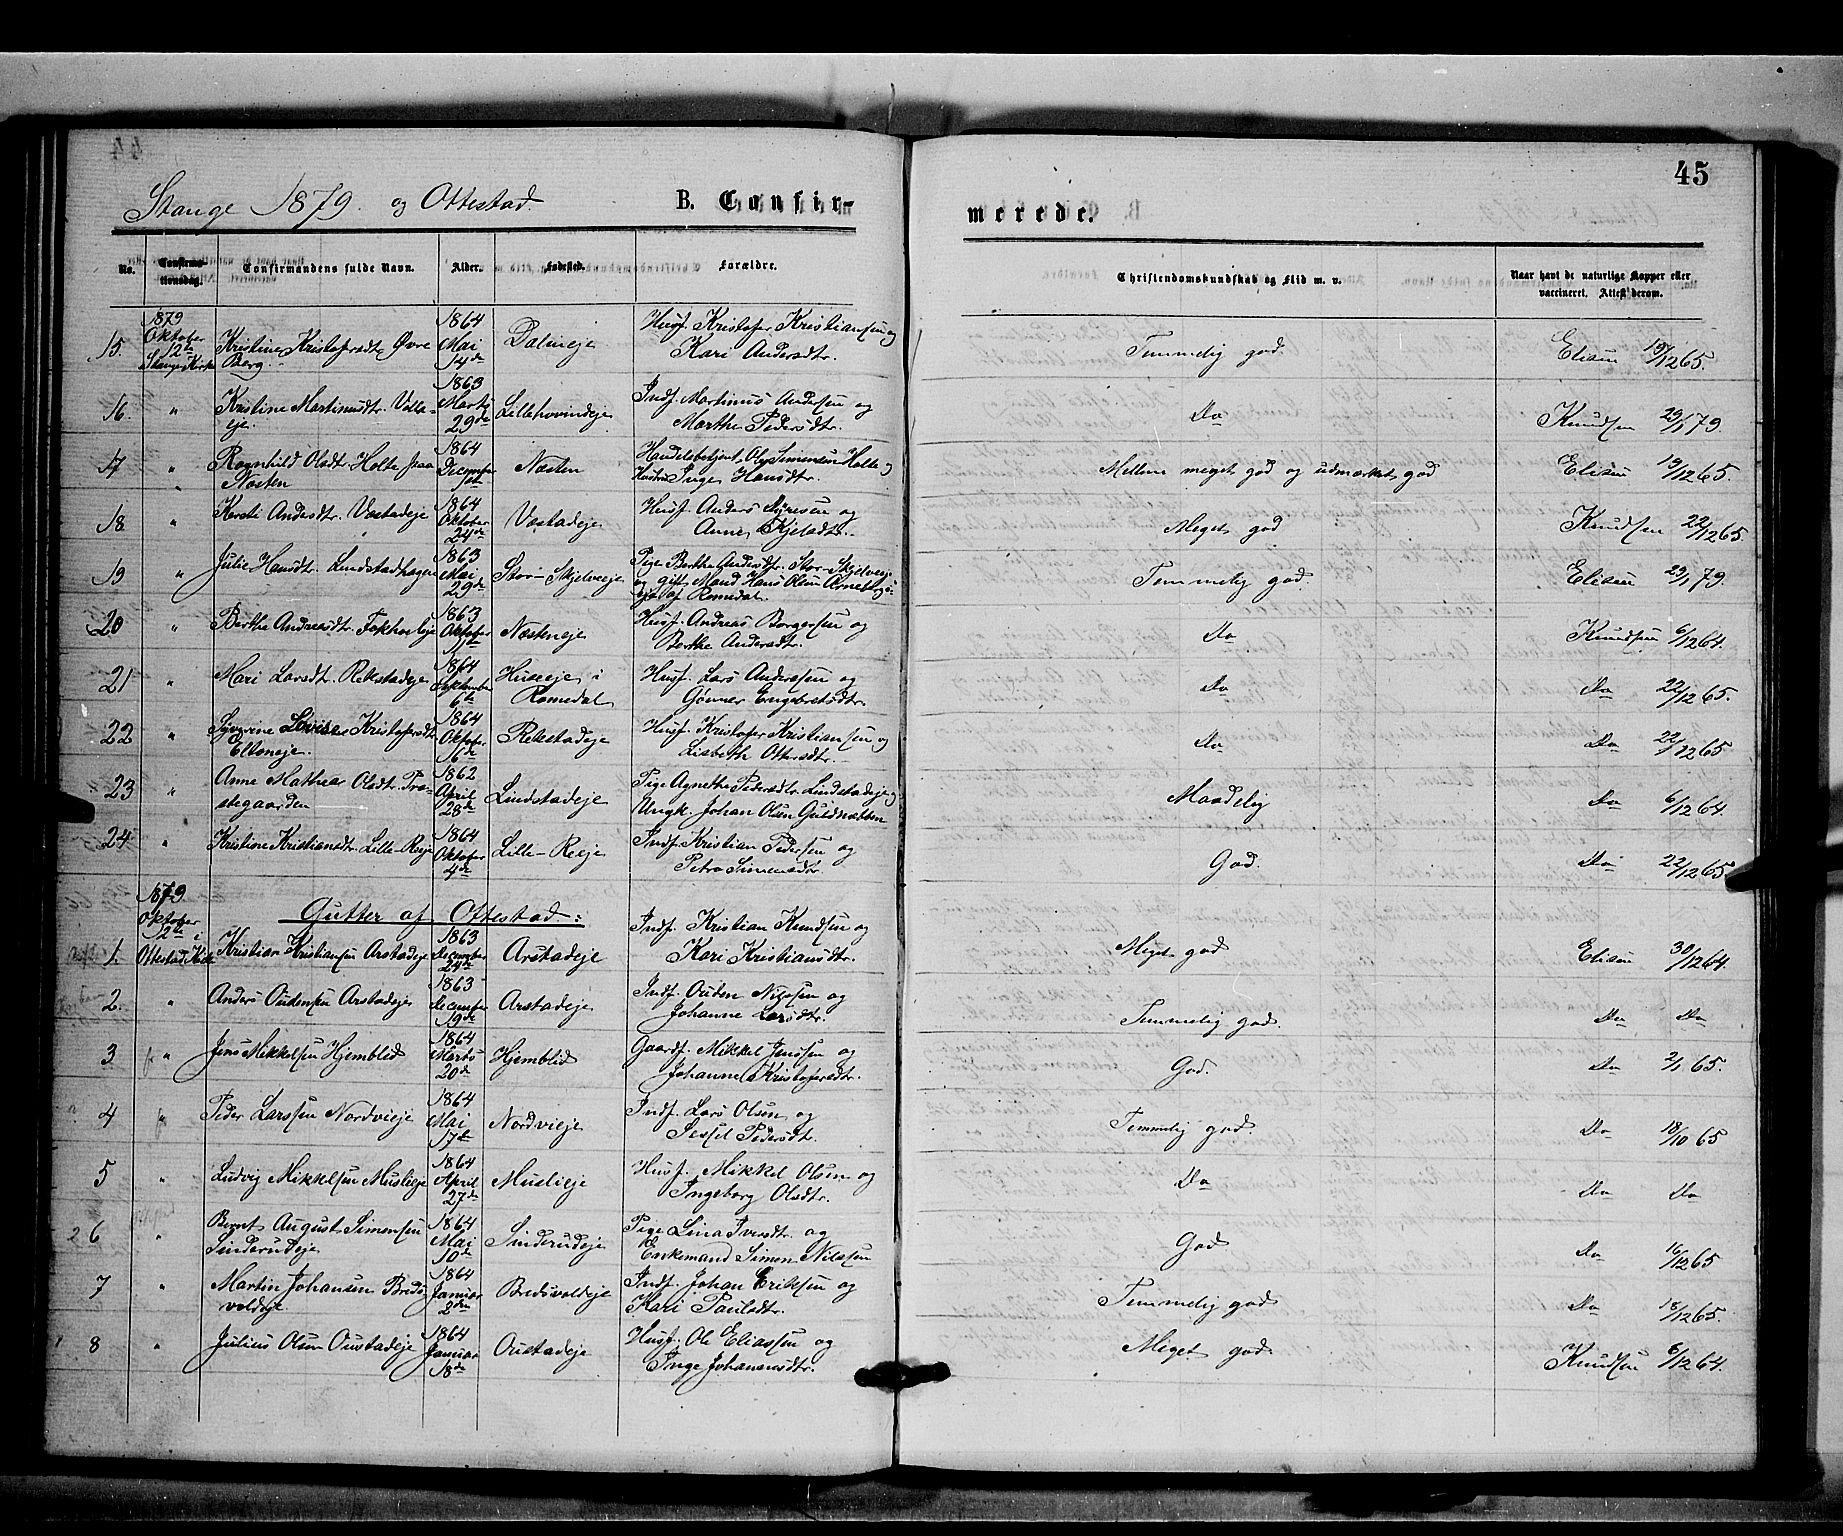 45
Stange 1879. og Ottestad.
B. Confir-
merede.
No.
Confirma-
tionsdag.
Confirmandens fulde Navn.
Alder.
Fødested.
Forældre.
Christendomskundskab og Flid m. v.
Naar havt de naturlige Kopper eller
vaccineret. Attest derom.
15.
1879
Oktober
12te
Stange Kirke
Kristine Kristofersdtr. Øvre
Berg.
1864
Mai
14de
Dalmeje
Husf. Kristofer Kristiansen og
Kari Andersdtr.
Temmelig god.
Elisen 19/12 65.
16.
"
Kristine Martinusdtr. Valla-
eje.
1863
Marts
29de
Lillehovindeje
Indf. Martinus Andersen og
Marthe Pedersdtr.
Do
Knudsen 29/1 79.
17
"
Ragnhild Olsdtr. Holte paa
Næsten
1864
December
Næsten
Handelsbetjent Ole Simensen Holte og
Hustru Inger Hansdtr.
Mellem meget god og udmærket god
Elisen 19/12 65.
18
"
Kersti Andersdtr. Væstadeje
1864
Oktober
24de
Væstadeje
Husf. Anders Syversen og
Anne Kjelsdtr.
Meget god
Knudsen 22/12 65.
19
"
Julie Hansdtr. Lindstadhagen
1863
Mai
29de
Stor-Skjelveeje
Pige Berthe Andersdtr. Stor-Skjelveeje
og gift Mand Hans Olsen Arneberg-
eje af Romedal.
Temmelig god.
Elisen 29/1 79.
20
"
Berthe Andreasdtr. Fokholeje
1863
Oktober
11te
Næsteneje
Husf. Andreas Borgersen og
Berthe Andersdtr.
Do
Knudsen 6/12 64.
21
"
Mari Larsdtr. Rekstadeje
1864
September
6te
Huseeje i
Romedal
Husf. Lars Andersen og
Gønner Engebretsdtr.
Do
Do 22/12 65.
22
"
Syverine Lovise Kristofersdtr.
Eltoneje.
1864
Oktober
16de
Rekstadeje
Husf. Kristofer Kristiansen og
Lisbeth Ottersdtr.
Do
Do 22/12 65
23
"
Anne Mathea Olsdtr. Præ-
stegaarden
1862
April
28de
Lindstadeje
Pige Agnethe Pedersdtr. Lindstadeje og
Ungk. Johan Olsen Guldnætten
Maadelig
Do 6/12 64.
24
"
Kristine Kristiansdtr. Lille-Reeje
1864
Oktober
4de
Lille-Reeje
Indf. Kristian Pedersen og
Petra Simensdtr
God.
Do 22/12 65
Gutter af Ottestad:
1.
1879.
Oktober
12te i
Ottestad Kirke
Kristian Kristiansen Arstadeje
1863
December
24de
Arstadeje
Indf. Kristian Knudsen og
Kari Kristiansdtr.
Meget god
Elisen 30/12 64.
2.
"
Anders Oudensen Arstadeje
1863
December
19de
Arstadeje
Indf. Ouden Nilssen og
Johanne Larsdtr.
Temmelig god.
Do Do
3
"
Jens Mikkelsen Hjemblid
1864
Marts
20de
Hjemblid
Gaardf. Mikkel Jenssen og
Johanne Kristofersdtr.
God.
Do 2/1 65.
4
"
Peder Larssen Nordvieje
1864
Mai
17de
Nordvieje
Indf. Lars Olsen og
Sessel Pedersdtr.
Temmelig god.
Do 18/10 65
5
"
Ludvig Mikkelsen Muslieje
1864
April
27de
Muslieje
Husf. Mikkel Olsen og
Ingeborg Olsdtr.
Do
Do Do
6
"
Bernt August Simensen
Sinderudeje
1864
Mai
10de
Sinderudeje
Pige Lina Iversdtr. og
Enkemand Simen Nilssen
God
Do 16/12 65
7
"
Martin Johansen Breds-
voldeje
1864
Januar
2den
Bredsvoldeje
Indf. Johan Eriksen og
Kari Paulsdtr.
Temmelig god
Do 18/12 65.
8
"
Julius Olsen Oustadeje
1864
Januar
18de
Oustadeje
Husf. Ole Eliassen og
Inge Johannesdtr.
Meget god.
Knudsen 6/12 64.